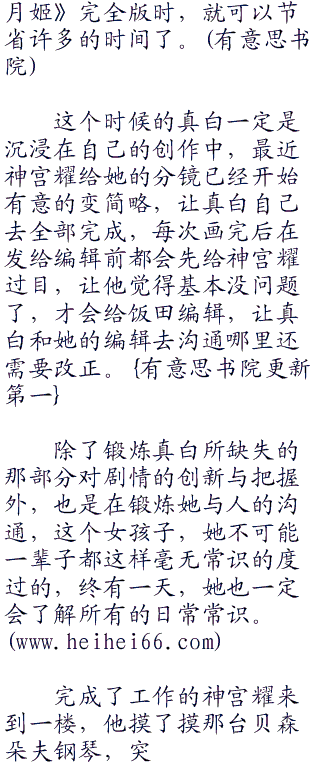 月姬》完全版时，就可以节
省许多的时间了。(有意思书
院)
这个时候的真白一定是
沉浸在自己的创作中，最近
神宫耀给她的分镜已经开始
有意的变简略，让真白自己
去全部完成，每次画完后在
发给编辑前都会先给神宫耀
过目，让他觉得基本没问题
了，才会给饭田编辑，让真
白和她的编辑去沟通哪里还
需要改正。{有意思书院更新
第一}
除了锻炼真白所缺失的
那部分对剧情的创新与把握
外，也是在锻炼她与人的沟
通，这个女孩子，她不可能
一辈子都这样毫无常识的度
过的，终有一天，她也一定
会了解所有的日常常识。
(www.heihei66.com)
完成了工作的神宫耀来
到一楼，他摸了摸那台贝森
朵夫钢琴，突